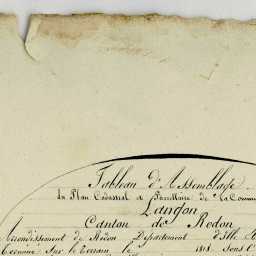 Tableau d'Assemblage
du Plan Cadastral et Parcellaire de la Commu
Langon
Canton de Redon
Arrondissement de Redon Département d'Ille
Terminé sur le Terrain, le 181 Sous l